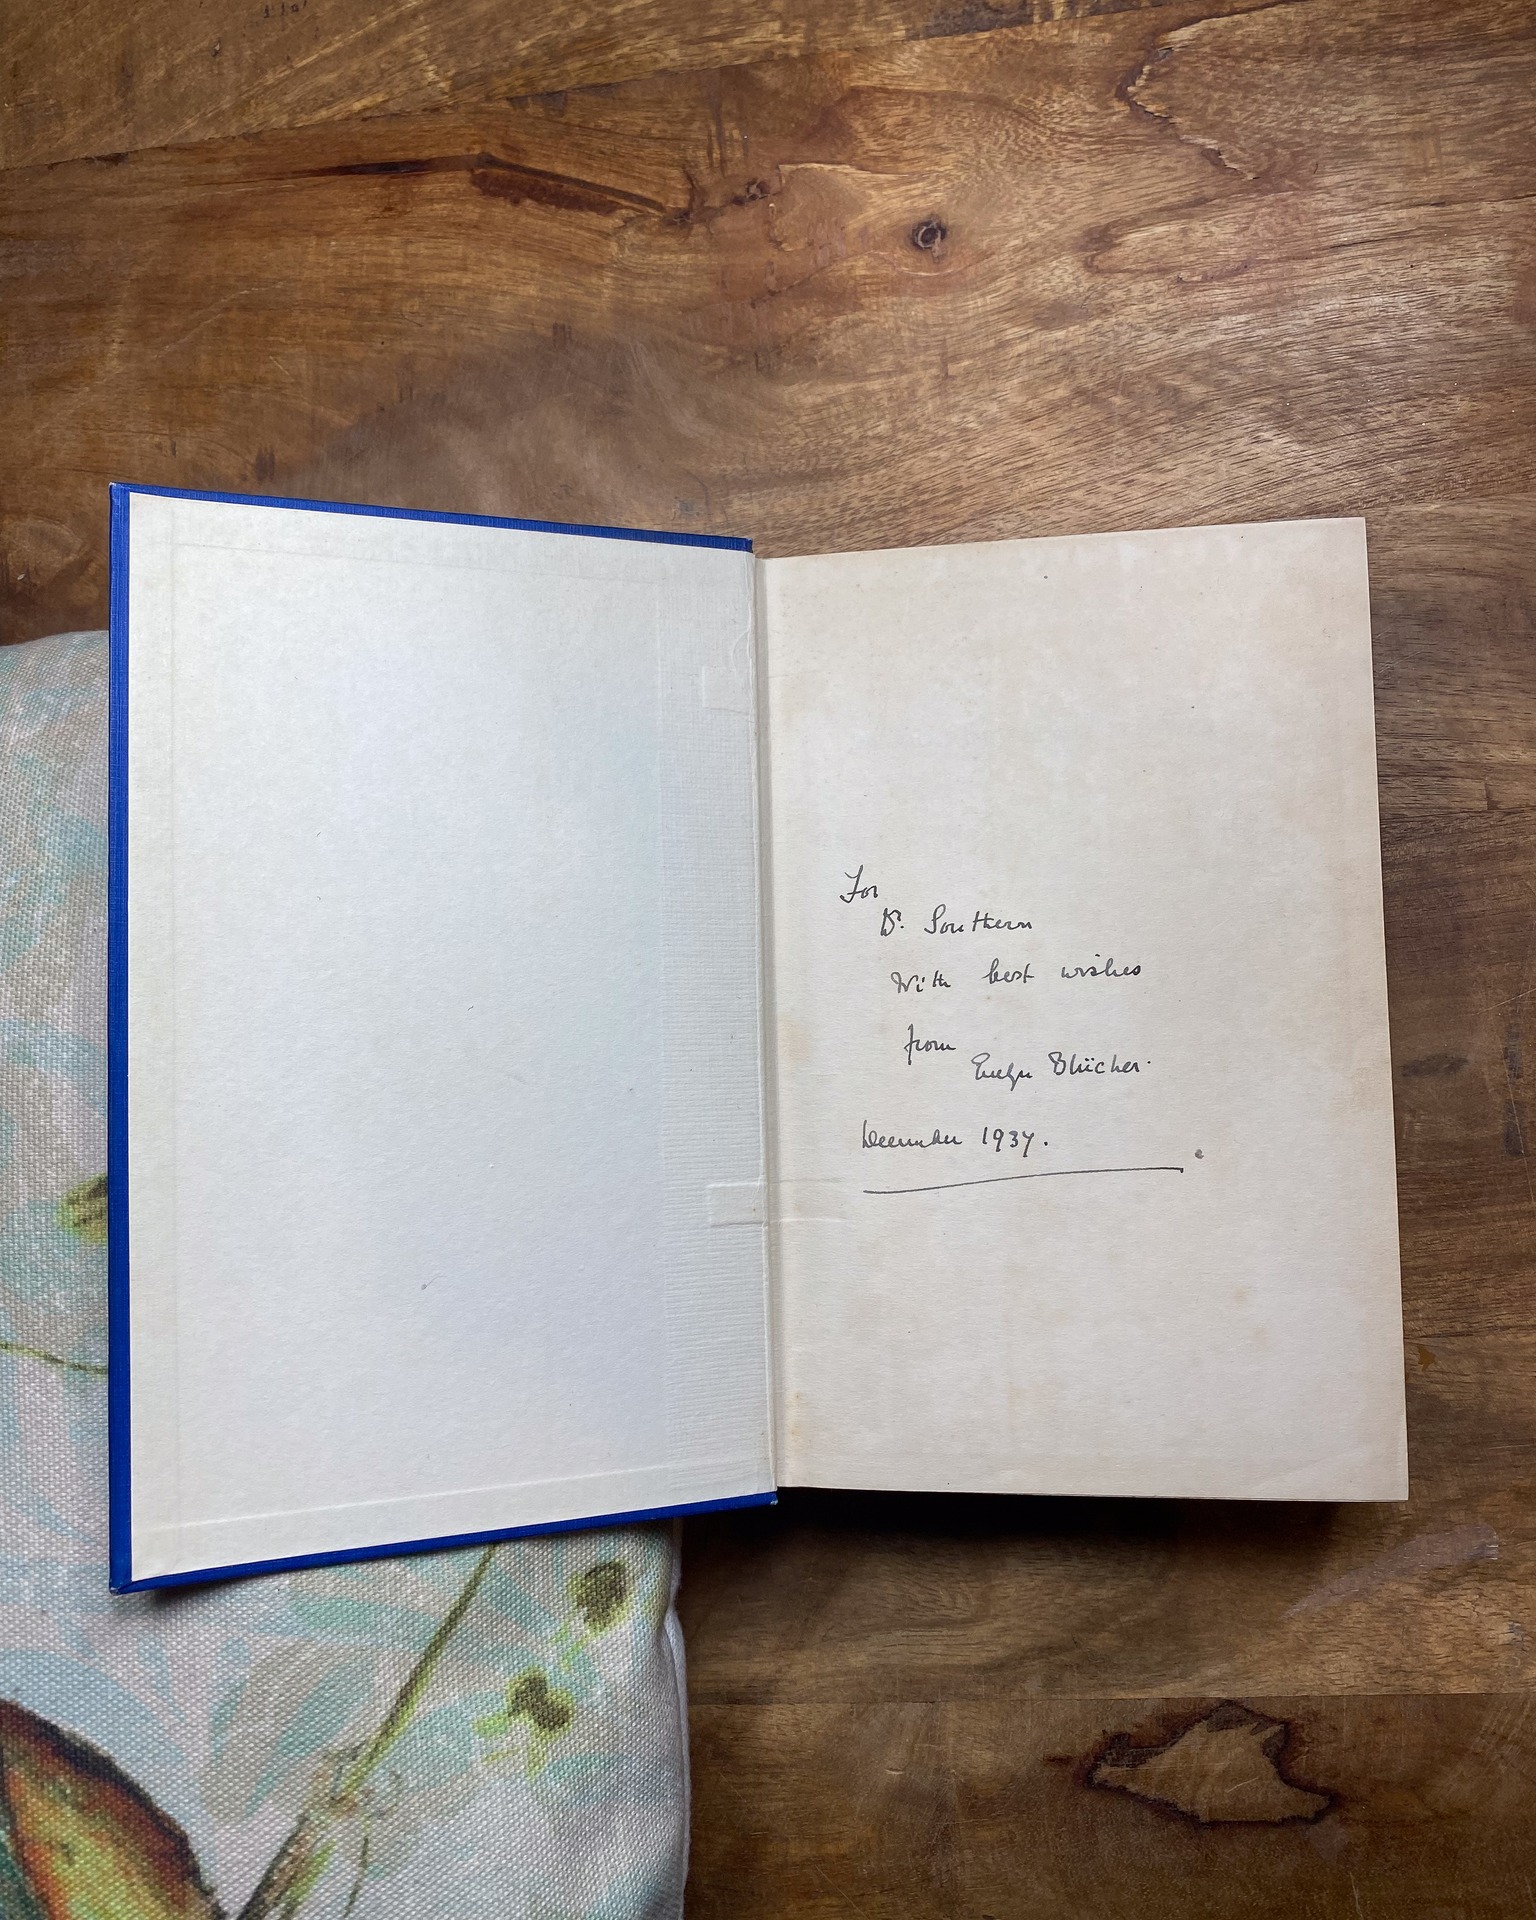 For
Dr. Southern
With best wishes
from
Evelyn Blücher.
December 1937.